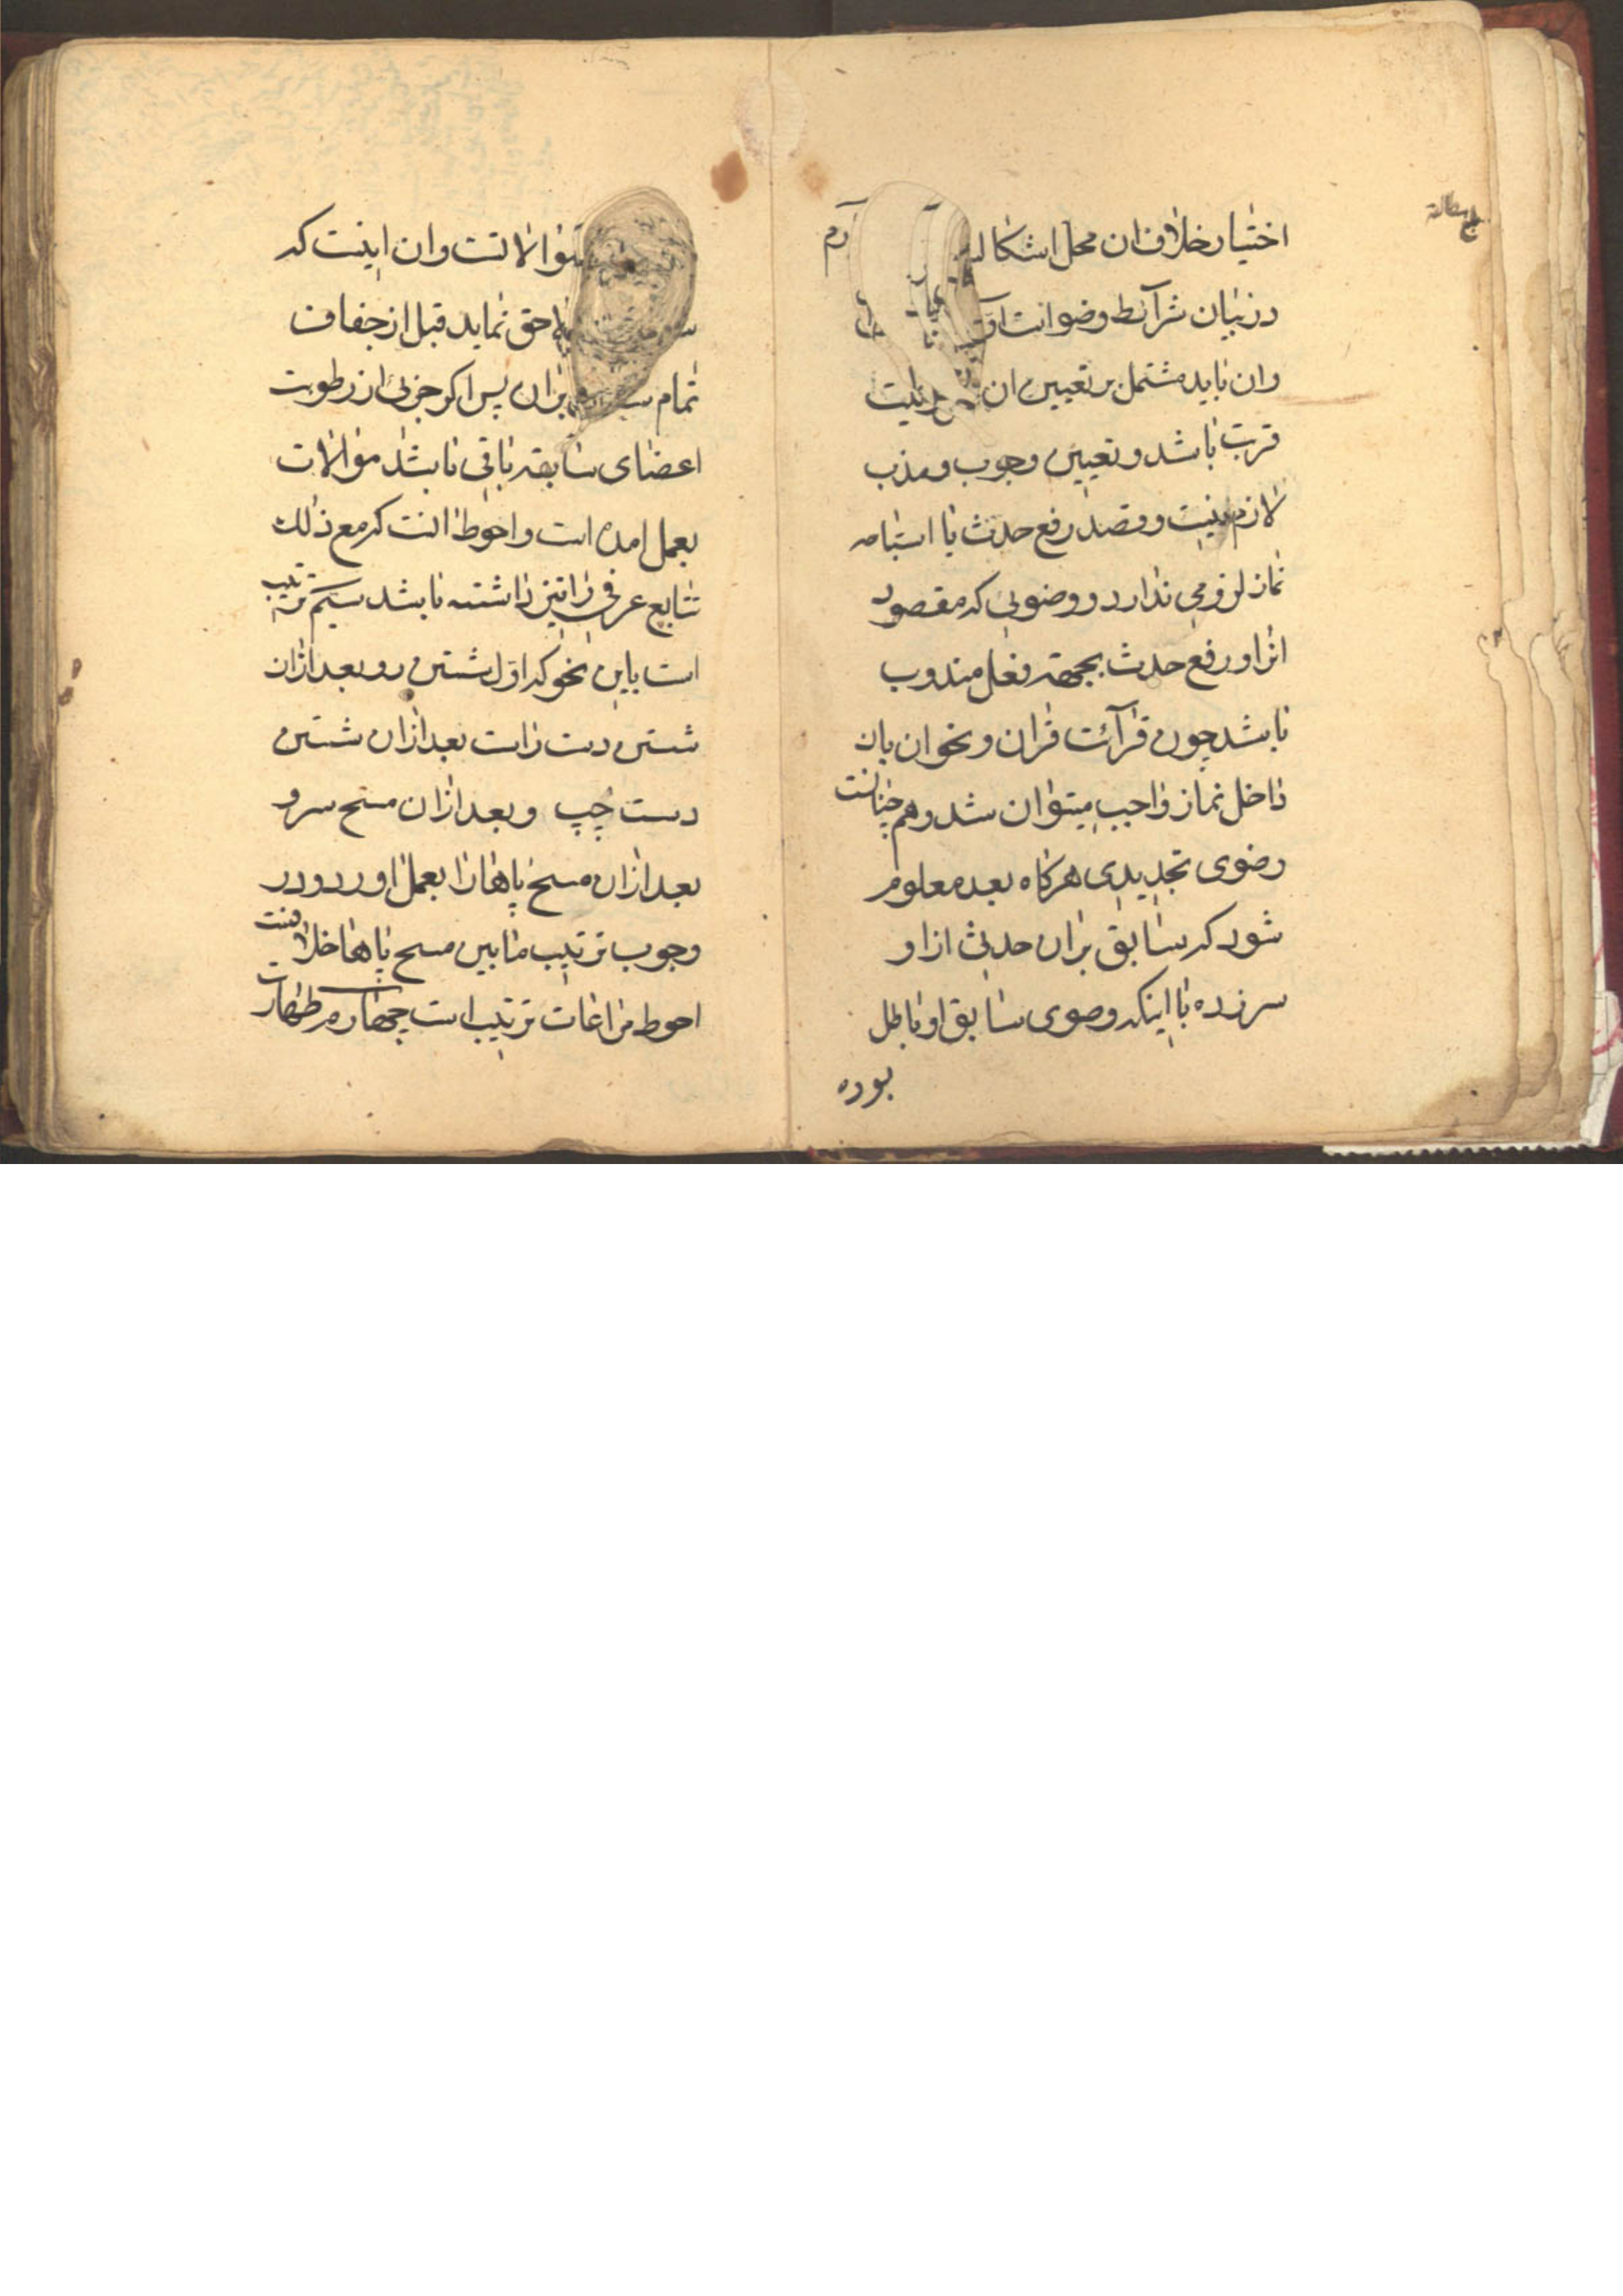 اختیار خلاف ان محل اشکال
در بیان شرآئط وضو است
وان باید مشتمل بر تعیین ان نیت
قربت باشد و تعیین وجوب و مذب
لازم نیست و قصد رفع حدث با استباحه
نماز لزومی ندارد و وضوئی که مقصود
اثر او رفع حدث بجهة فعل مندوب
باشد چون قرآئت قران و نحو ان بان
داخل نماز واجب میتوان شد و هم چنانست
وضوی تجدیدی هرکاه بعد معلوم
شود که سابق بران حدثی از او
سرزده با اینکه وضوی سابق او باطل
بوده
موالاتست وان اینست که
لاحق نماید قبل از جفاف
تمام بران پس اکر جزئی از رطوبت
اعضای سابقه باقی باشد موالات
بعمل امده است و احوط انست که مع ذلک
تتابع عرفی را نیز داشته باشد سیم ترتیب
است باین نحو که اول شستن رو بعد ازان
شستن دست راست بعد ازان شستن
دست چپ و بعد ازان مسح سر و
بعد ازان مسح پاها را بعمل اورد و در
وجوب ترتیب مابین مسح پاها خلافست
احوط مراعات ترتیب است چهارم طهارت